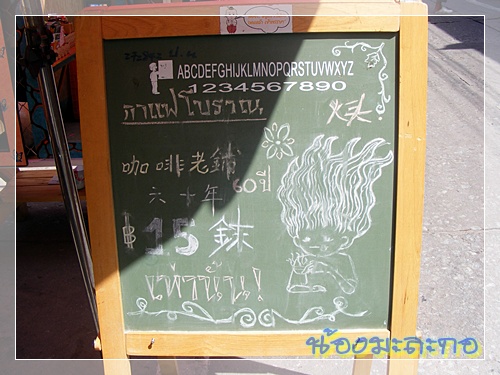 ABCDEFGHIJKLMNOPQRSTUVWXYZ
1234567890
กาแฟโบราณ
咖啡老鋪
六十年 60 ปี
฿ 15 銖
เท่านั้น!
น้องมะละกอ